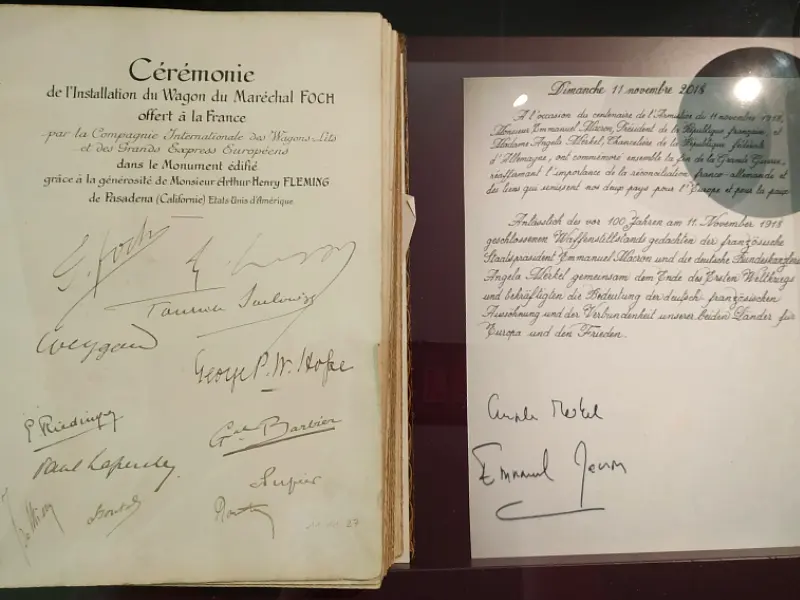 Cérémonie
de l'Installation du Wagon du Maréchal FOCH
offert à la France
par la Compagnie Internationale des Wagons-Lits
et des Grands Express Européens
dans le Monument édifié
grâce à la générosité de Monsieur Arthur Henry FLEMING
de Pasadena (Californie) Etats Unis d'Amérique
Foch
Weygand
George P. W. Hope
Gal Barbier
Dimanche 11 novembre 2018
A l'occasion du centenaire de l'Armistice du 11 novembre 1918,
Monsieur Emmanuel Macron, Président de la République française et
Madame Angela Merkel, Chancelière de la République fédérale
d'Allemagne, ont commémoré ensemble la fin de la Grande Guerre,
réaffirmant l'importance de la réconciliation franco-allemande et
des liens qui unissent nos deux pays pour l'Europe et pour la paix
Anlässlich des vor 100 Jahren am 11. November 1918
geschlossenen Waffenstillstands gedachten der französische
Staatspräsident Emmanuel Macron und die deutsche Bundeskanzlerin
Angela Merkel gemeinsam dem Ende des Ersten Weltkriegs
und bekräftigten die Bedeutung der deutsch-französischen
Aussöhnung und der Verbundenheit unserer beiden Länder für
Europa und den Frieden.
Angela Merkel
Emmanuel Macron